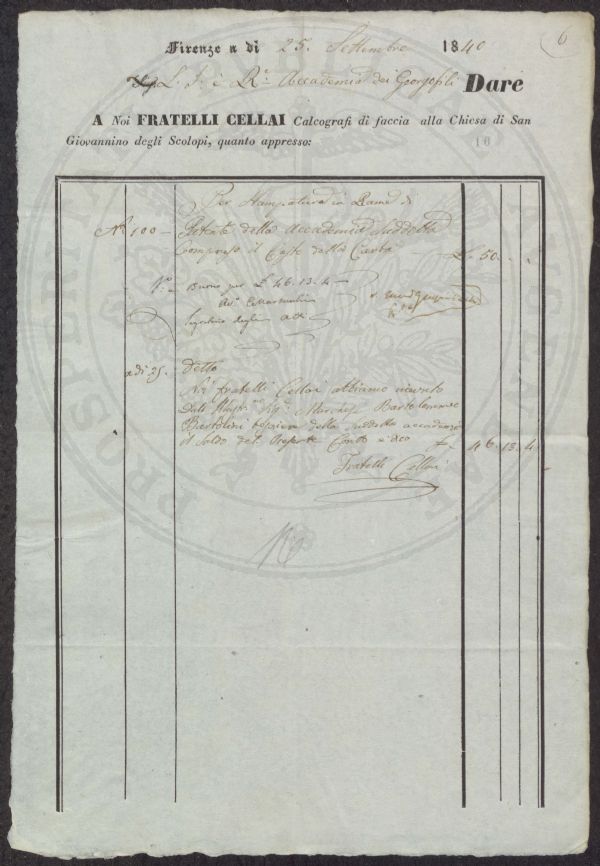 6
Firenze a di 25. Settembre 1840
L. I. e R. Accademia dei Georgofili Dare
A Noi FRATELLI CELLAI Calcografi di faccia alla Chiesa di San
Giovannino degli Scolopi, quanto appresso:
10
Per Stampatura in Rame di
No. 100 — della Accademia Suddetta
Compreso il Costo della Carta — L. 50. . .
Buono per £ 46.13.4 —
Segretario degli Atti
a di 25. detto
Noi fratelli Cellai abbiamo ricevuto
dall Illmo. Sig. Marchese Bartolommeo
Bartolini tesoriere della suddetta accademia
il Saldo del Presente Conto £ 46. 13. 4
Fratelli Cellai